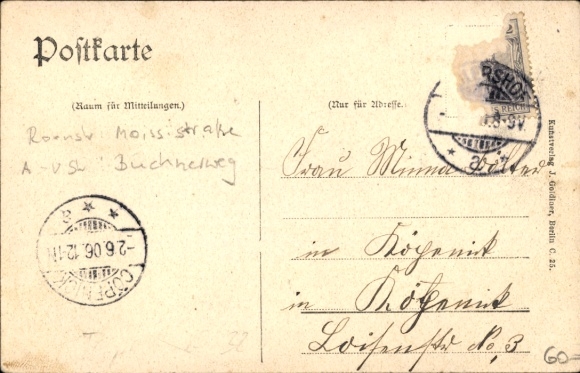 Postkarte
(Raum für Mitteilungen.)
(Nur für Adresse.)
Moiss straße
A-VStr Buchnerweg
CÖPENICK
-2.6.06.12-1N
* a *
ERSHOF
8-9V.
* a *
REICH
Frau Minna
in Köpenick
in Köpenick
No. 3
Kunstverlag J. Goldiner, Berlin C. 25.
60-